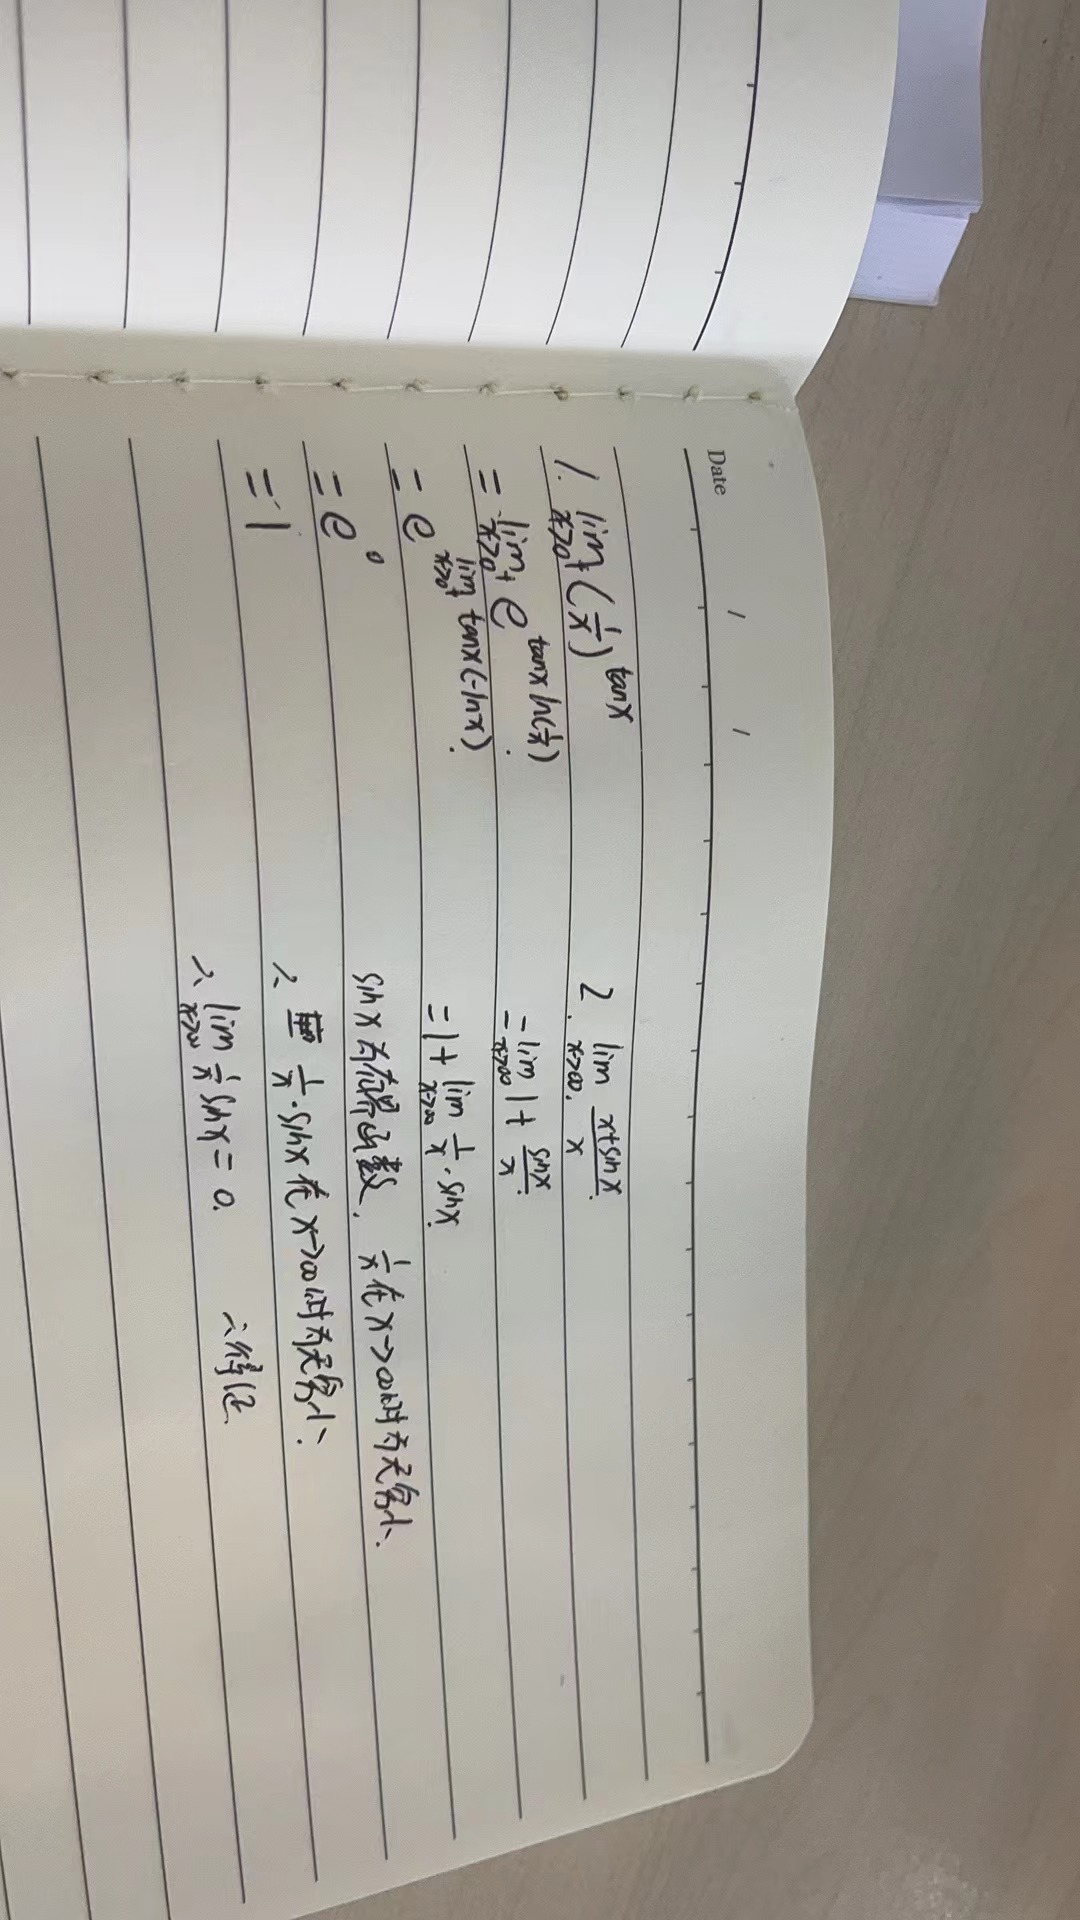 Date / /
1. lim x→0+ (1/x)^tanx
= lim x→0+ e^tanx ln(1/x).
= e^lim x→0+ tanx(-lnx).
= e^0
= 1
2. lim x→∞. x+sinx/x.
= lim x→∞ 1+ sinx/x.
= 1+ lim x→∞ 1/x · sinx.
sinx为有界函数. 1/x在x→∞时为无穷小.
∴ 1/x·sinx在x→∞时为无穷小.
∴ lim x→∞ 1/x sinx = 0. ∴得证